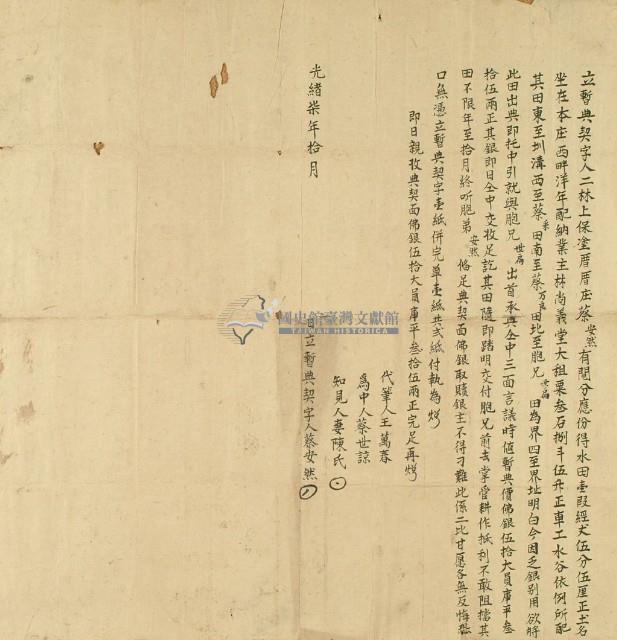 立暫典契字人二林上保塗厝厝庄蔡安然有鬮分應份得水田壹段經丈伍分伍厘正土名
坐在本庄西畔洋年配納業主林尚義堂大租粟叁石捌斗伍升正車工水谷依例所配
其田東至圳溝西至蔡 田南至蔡万良田北至胞兄世扁田為界四至界址明白今因乏銀別用欲將
此田出典即托中引就與胞兄世扁出首承典仝中三面言議時値暫典價佛銀伍拾大員庫平叁
拾伍兩正其銀即日仝中交收足訖其田隨即踏明交付胞兄前去掌管耕作抵利不敢阻擋其
田不限年至拾月終听胞弟安然俻足典契面佛銀取贖銀主不得刁難此係二比甘愿各無反悔恐
口無憑立暫典契字壹紙併完单壹紙共弍紙付執為炤
即日親收典契面佛銀伍拾大員庫平叁拾伍兩正完足再炤
代筆人王萬春
為中人蔡世諒
知見人妻陳氏
光緒柒年拾月
日立暫典契字人蔡安然
國史館臺灣文獻館
TAIWAN HISTORICA